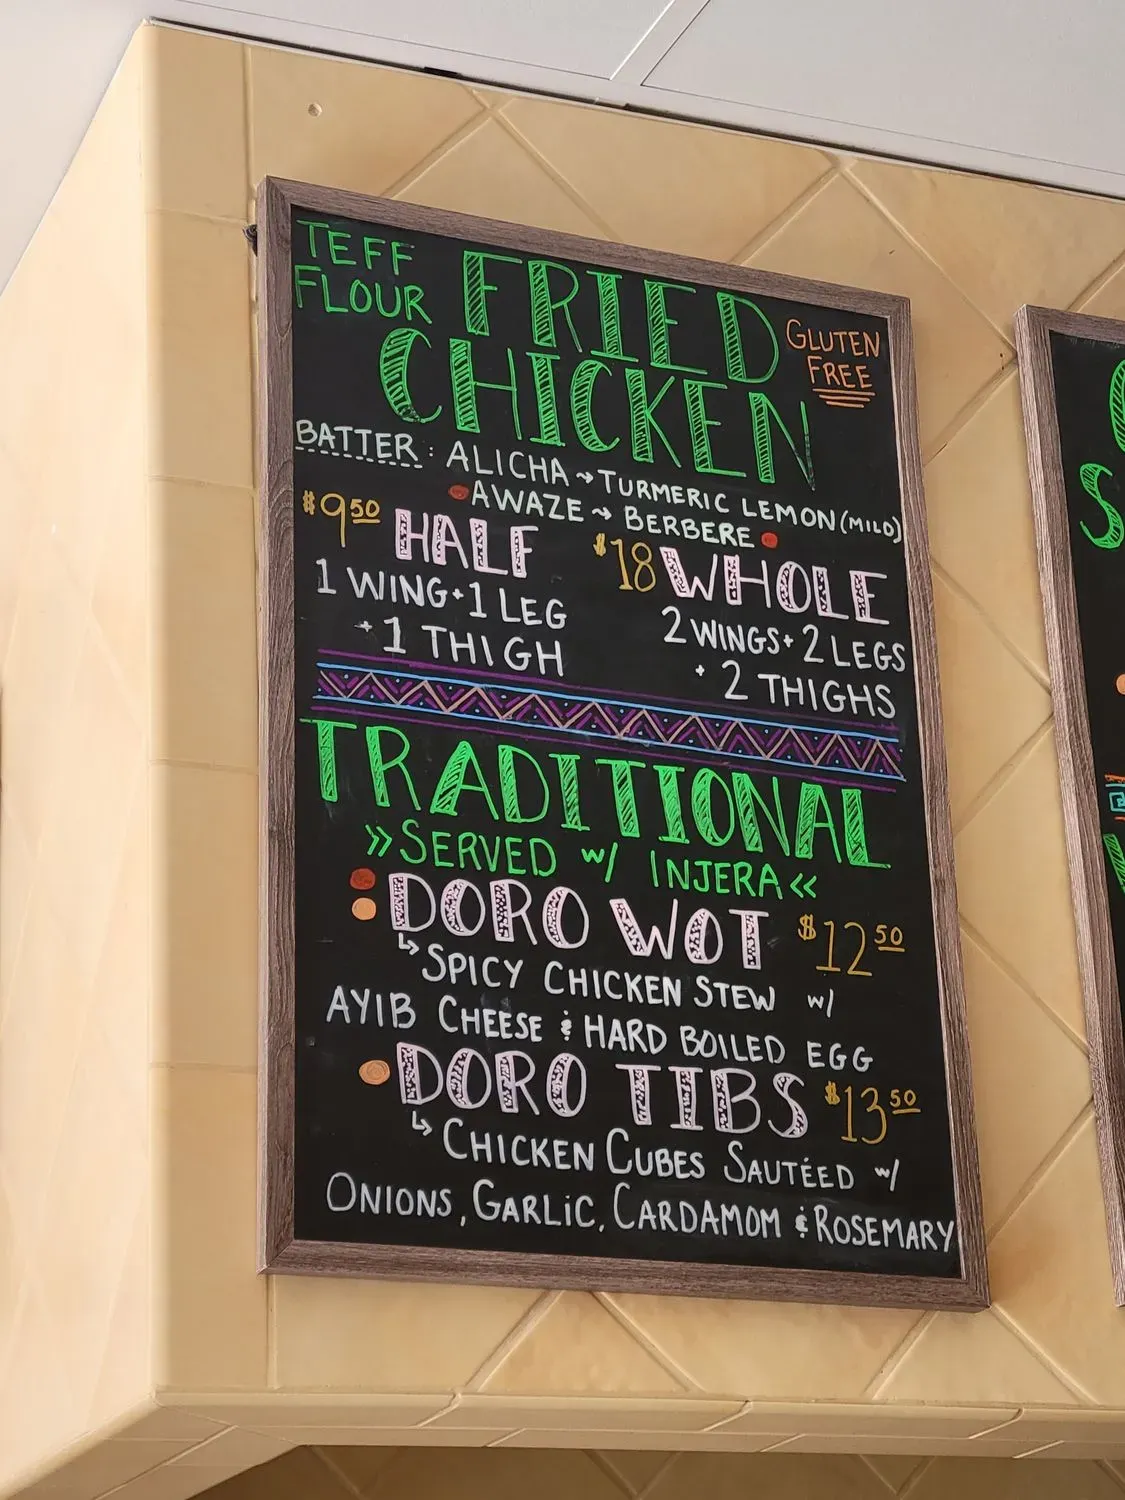 TEFF
FLOUR
FRIED
CHICKEN
GLUTEN
FREE
BATTER: ALICHA → TURMERIC LEMON (MILD)
AWAZE → BERBERE
$9.50 HALF
1 WING + 1 LEG
+ 1 THIGH
$18 WHOLE
2 WINGS + 2 LEGS
+ 2 THIGHS
TRADITIONAL
»SERVED w/ INJERA«
DORO WOT $12.50
↳ SPICY CHICKEN STEW w/
AYIB CHEESE & HARD BOILED EGG
DORO TIBS $13.50
↳ CHICKEN CUBES SAUTÉED w/
ONIONS, GARLIC, CARDAMOM & ROSEMARY